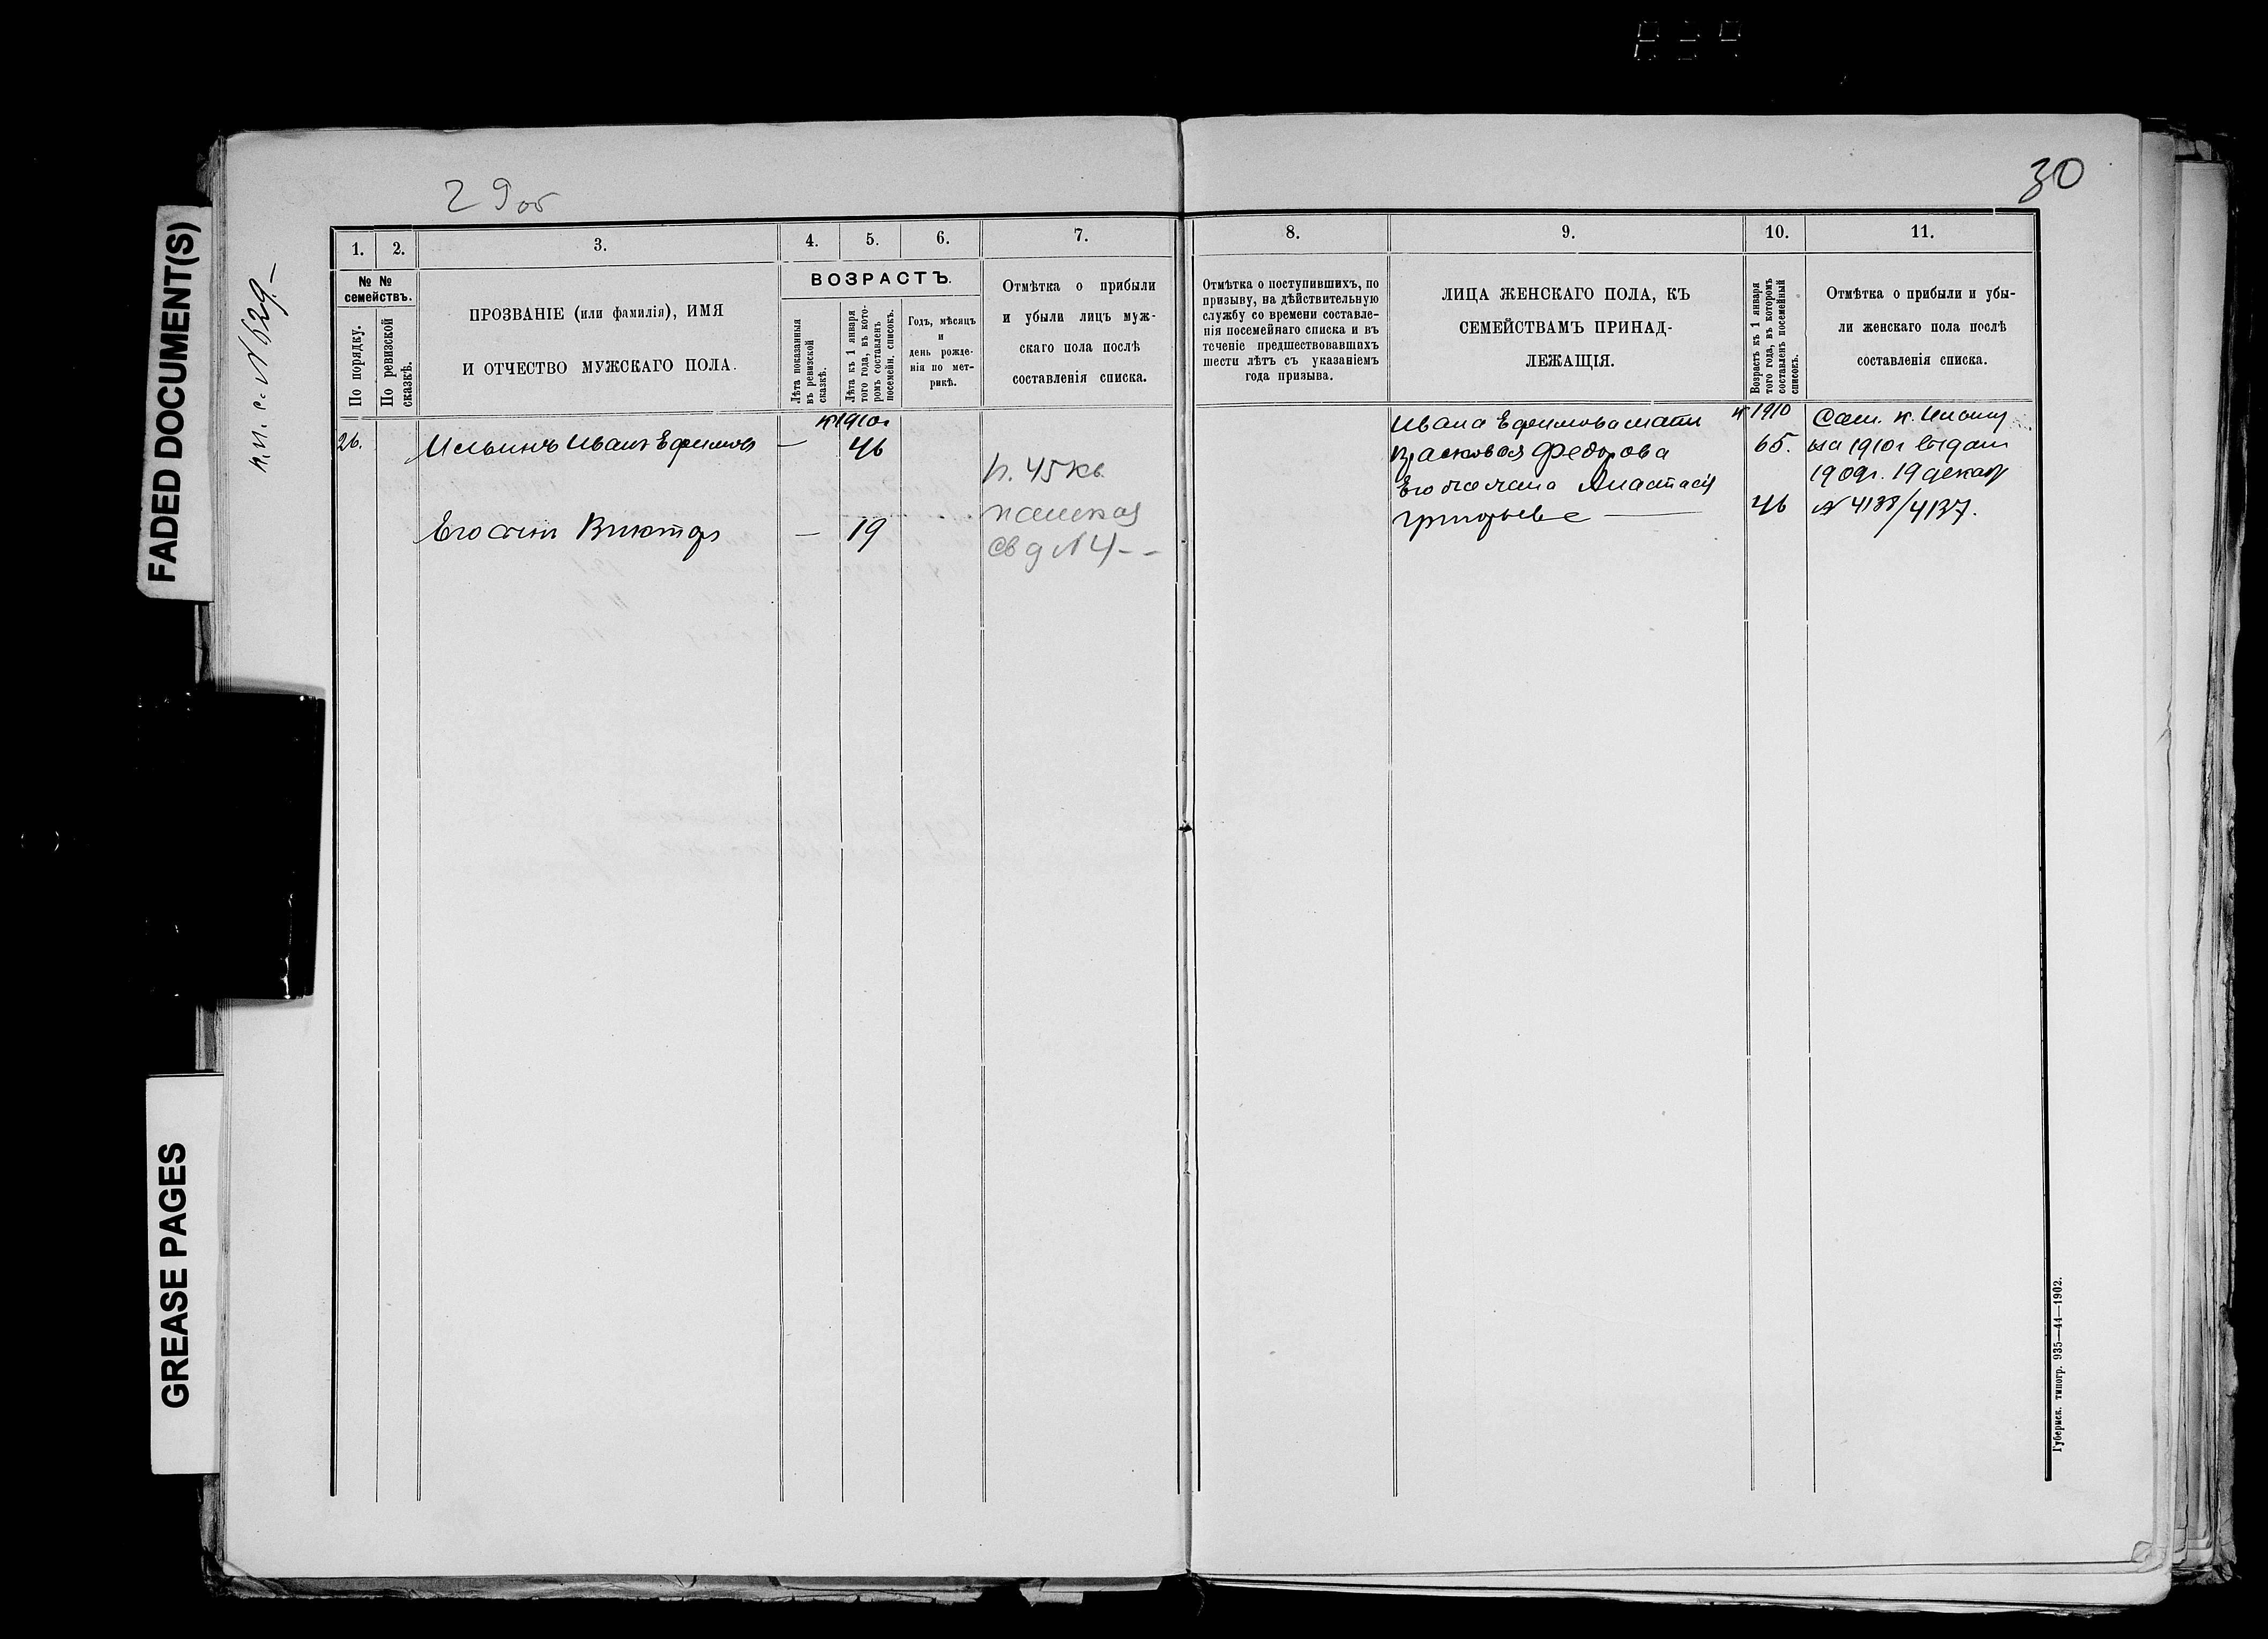 30
29об
FADED DOCUMENT(S)
GREASE PAGES
п. п. с. №
1.
2.
3.
4.
5.
6.
7.
№ №
семействъ.
По порядку.
По ревизской
сказкѣ.
ПРОЗВАНІЕ (или фамилія), ИМЯ
И ОТЧЕСТВО МУЖСКАГО ПОЛА.
ВОЗРАСТЪ.
Лѣта показанныя
въ ревизской
сказкѣ.
Лѣта къ 1 января
того года, въ кото-
ромъ составленъ
посемейн. списокъ.
Годъ, мѣсяцъ
и
день рожде-
нія по мет-
рикѣ.
Отмѣтка о прибыли
и убыли лицъ муж-
скаго пола послѣ
составленія списка.
к 1910г
26. Ильинъ Иванъ Ефимовъ — 46
Его сынъ Викторъ — 19
п. 45 кв.
№ 4 - -
8.
9.
10.
11.
Отмѣтка о поступившихъ, по
призыву, на дѣйствительную
службу со времени составле-
нія посемейнаго списка и въ
теченіе предшествовавшихъ
шести лѣтъ съ указаніемъ
года призыва.
ЛИЦА ЖЕНСКАГО ПОЛА, КЪ
СЕМЕЙСТВАМЪ ПРИНАД-
ЛЕЖАЩІЯ.
Возрастъ къ 1 января
того года, въ которомъ
составленъ посемейный
списокъ.
Отмѣтка о прибыли и убы-
ли женскаго пола послѣ
составленія списка.
Ивана Ефимова мать к 1910
Прасковья Федорова 65.
Его жена Анастасія
Григорьева — 46
на 1910г выдан
1909г. 19 декаб
№ 4138/4137.
Губернск. типогр. 935—44—1902.